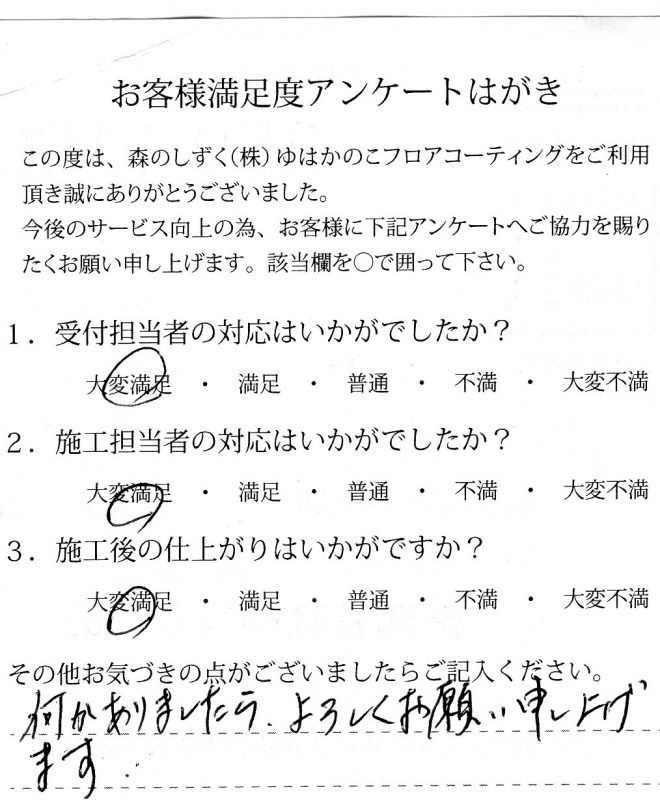 お客様満足度アンケートはがき
この度は、森のしずく(株)ゆはかのこフロアコーティングをご利用
頂き誠にありがとうございました。
今後のサービス向上の為、お客様に下記アンケートへご協力を賜り
たくお願い申し上げます。該当欄を○で囲って下さい。
1．受付担当者の対応はいかがでしたか？
大変満足 ・ 満足 ・ 普通 ・ 不満 ・ 大変不満
2．施工担当者の対応はいかがでしたか？
大変満足 ・ 満足 ・ 普通 ・ 不満 ・ 大変不満
3．施工後の仕上がりはいかがですか？
大変満足 ・ 満足 ・ 普通 ・ 不満 ・ 大変不満
その他お気づきの点がございましたらご記入ください。
何かありましたら、よろしくお願い申し上げ
ます.